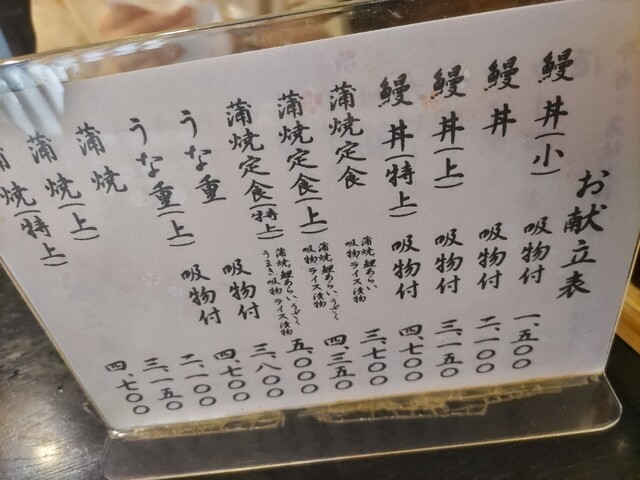 お献立表
鰻丼(小) 吸物付 一、五〇〇
鰻丼 吸物付 二、一〇〇
鰻丼(上) 吸物付 三、一五〇
鰻丼(特上) 吸物付 四、七〇〇
蒲焼定食 蒲焼 鯉あらい 吸物 ライス 漬物 三、七〇〇
蒲焼定食(上) 蒲焼 鯉あらい、うざく 吸物 ライス 漬物 四、三五〇
蒲焼定食(特上) 蒲焼 鯉あらい、うざく うまき 吸物 ライス 漬物 五、〇〇〇
うな重 吸物付 三、八〇〇
うな重(上) 吸物付 四、七〇〇
蒲焼 二、一〇〇
蒲焼(上) 三、一五〇
蒲焼(特上) 四、七〇〇